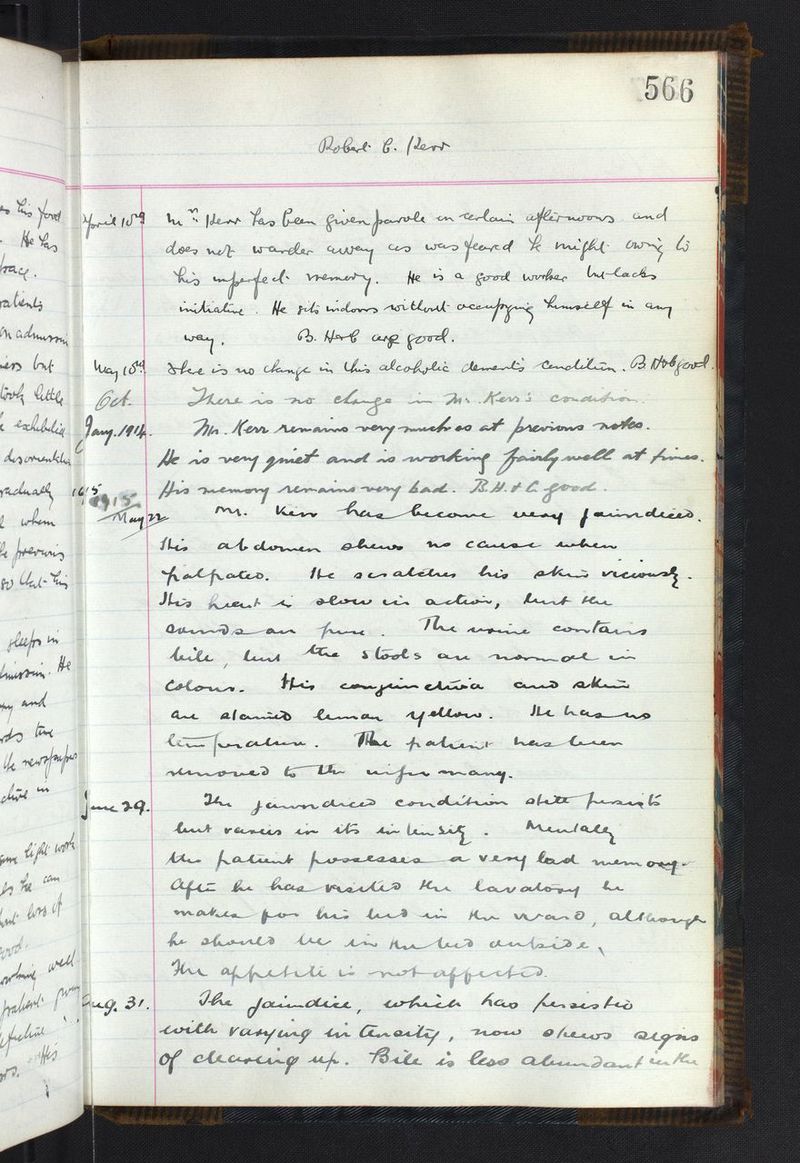 566
Robert C. Kerr
April 10th Mr Kerr has been given parole on certain afternoons and
does not wander away as was feared he might owing to
his imperfect memory. He is a good worker but lacks
initiative. He sits indoors without occupying himself in any
way. B. Health are good.
May 10th There is no change in this alcoholic dement's condition. B. H & C good.
Oct. There is no change in Mr. Kerr's condition.
Jany. 1914. Mr. Kerr remains very much as at previous notes.
He is very quiet and is working fairly well at times.
1915 His memory remains very bad. B.H. & C. good.
1915 May 22 Mr. Kerr has become very jaundiced.
His abdomen shews no cause when
palpated. He scratches his skin viciously.
His heart is slow in action, but the
sounds are pure. The urine contains
bile, but the stools are normal in
colour. His conjunctiva and skin
are stained lemon yellow. He has no
temperature. The patient has been
removed to the infirmary.
June 29. The jaundiced condition still persists
but varies in its intensity. Mentally
the patient possesses a very bad memory.
After he has visited the lavatory he
makes for his bed in the ward, although
he should be in the bed outside.
The appetite is not affected.
Aug. 31. The jaundice, which has persisted
with varying intensity, now shews signs
of clearing up. Bile is less abundant in the